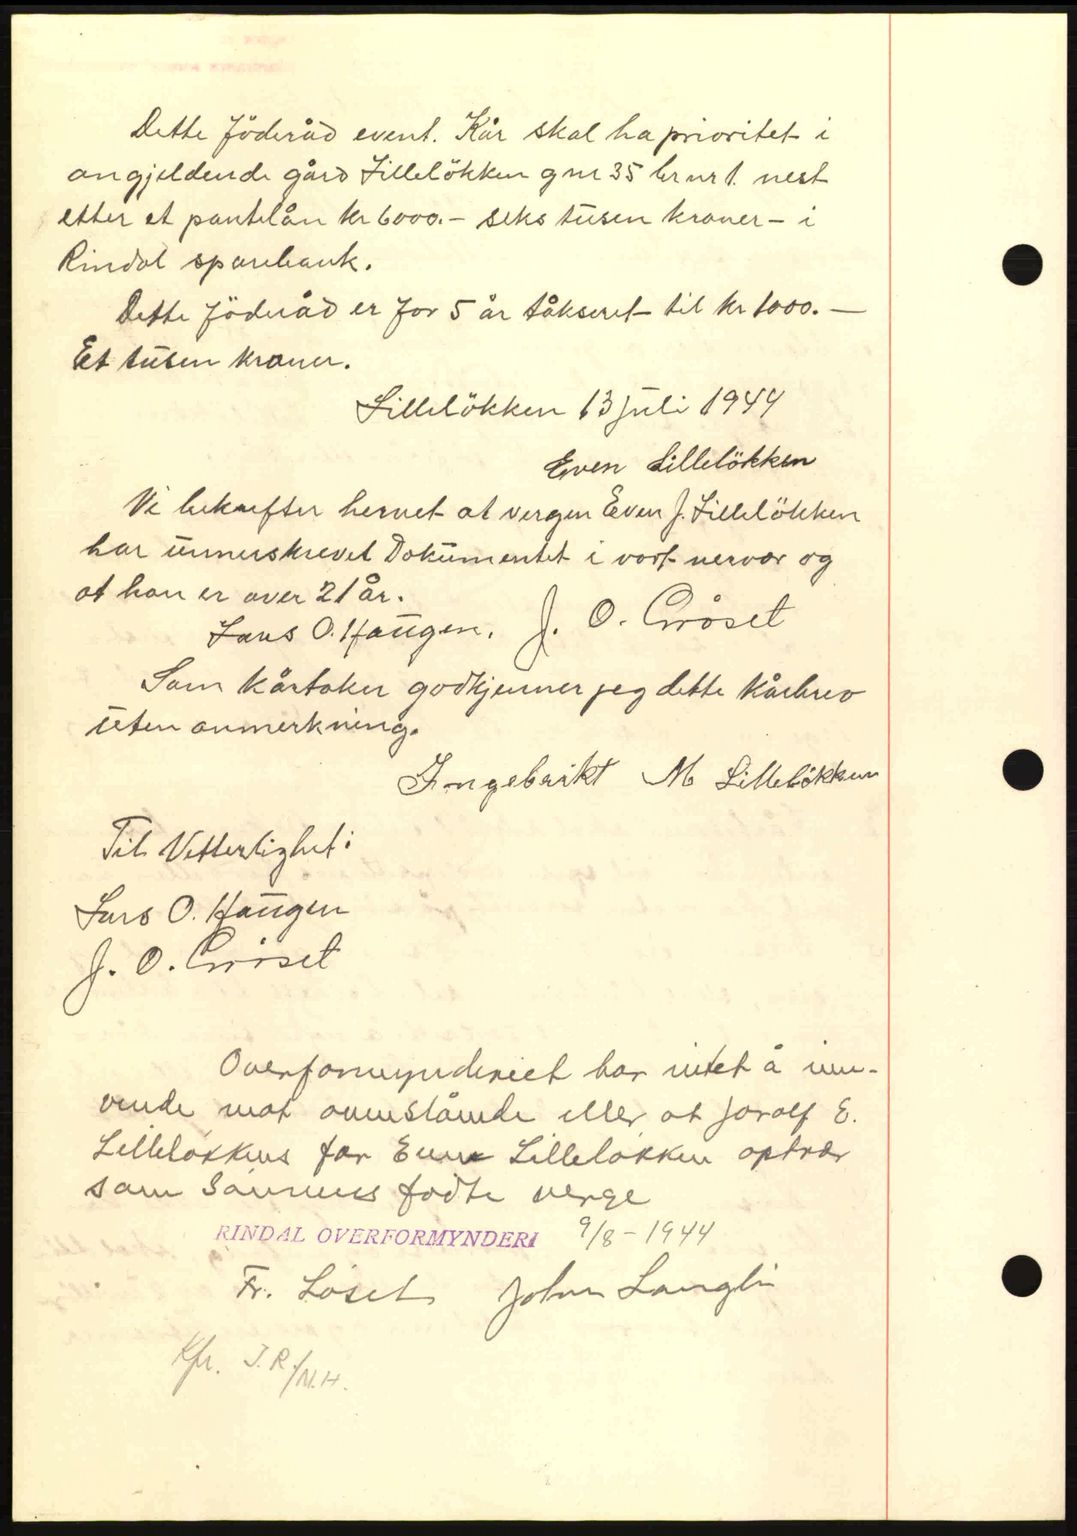 Dette föderåd event. Kår skal ha prioritet i
angjeldende gård Lilleløkken gnr 35 brnr 1. nest
etter et pantelån kr 6000.- seks tusen kroner - i
Rindal sparebank.
Dette föderåd er for 5 år tåkseret til kr 1000. —
Et tusen kroner.
Lillelökken 13 juli 1944
Even Lillelökken
Vi bekrefter hervet at vergen Even J. Lillelökken
har unnerskrevet Dokumentet i vort nervær og
at han er over 21 år.
Lars O. Haugen. J. O. Gråset
Som kårtaker godkjenner jeg dette kårbrev
uten anmerkning.
Ingebrikt M Lillelökken
Til Vitterlighet:
Lars O. Haugen
J. O. Gråset
Overformynderiet har intet å inn-
vende mot ovenstående eller at Joralf E.
Lilleløkkens far Even Lilleløkken optrær
som sønnens fødte verge
RINDAL OVERFORMYNDERI 9/8 - 1944
Fr. Løset John Langli
Kfr. J.R./N.H.